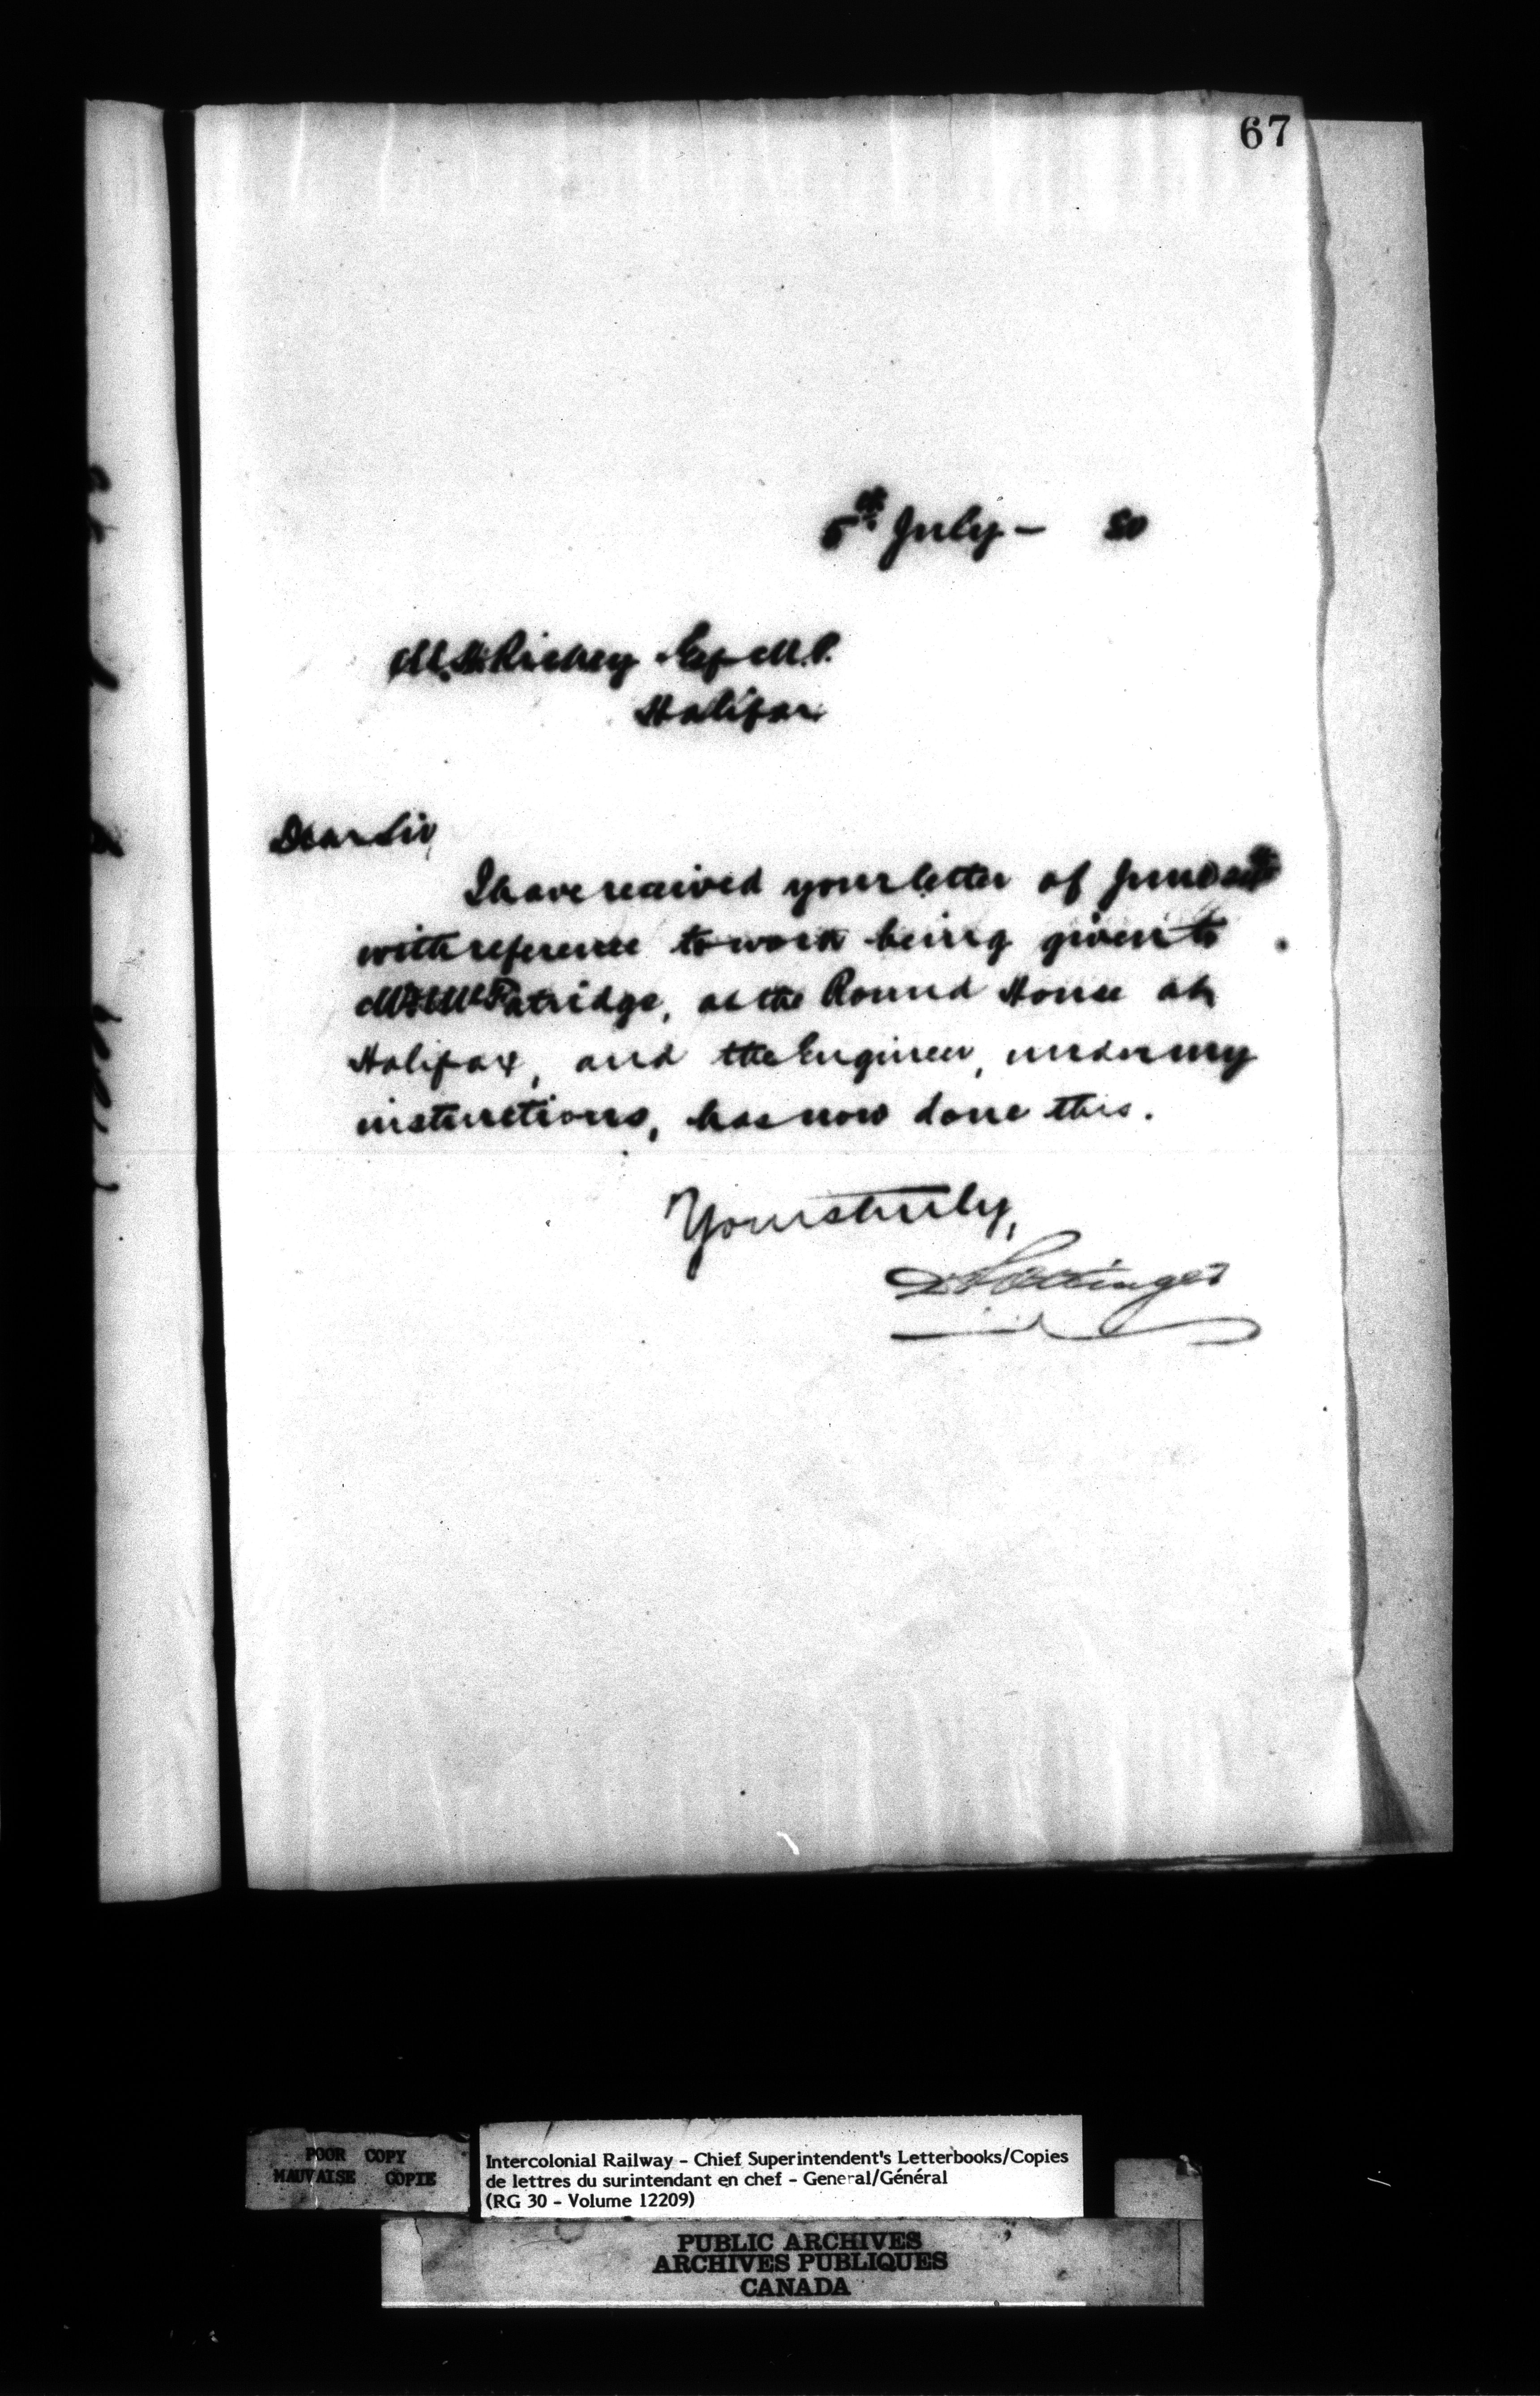 67
5th July – 80
M. H. Richey Esq M.P.
Halifax
Dear Sir,
I have received your letter of June
with reference to work being given to
McFatridge, at the Round House at
Halifax, and the Engineer, under my
instructions, has now done this.
Yours truly,
D Pottinger
POOR COPY
MAUVAISE COPIE
Intercolonial Railway - Chief Superintendent's Letterbooks/Copies
de lettres du surintendant en chef - General/Général
(RG 30 - Volume 12209)
PUBLIC ARCHIVES
ARCHIVES PUBLIQUES
CANADA